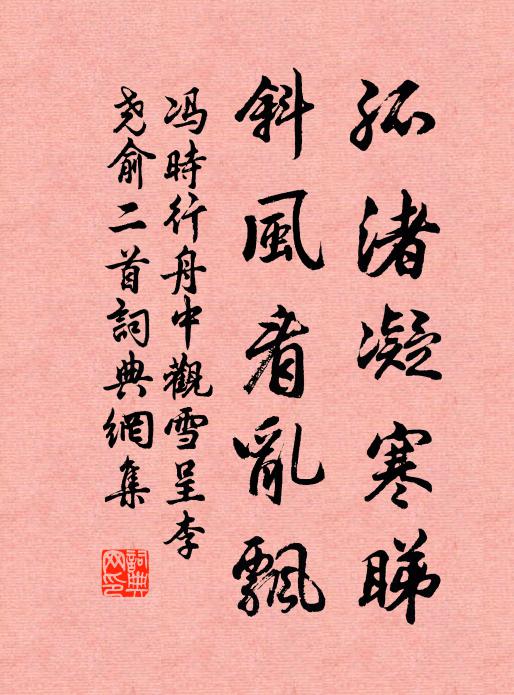 孤渚凝寒睇
斜風看亂飄
馮時行舟中觀雪呈李
尧俞二首詞典網集
詞典網印